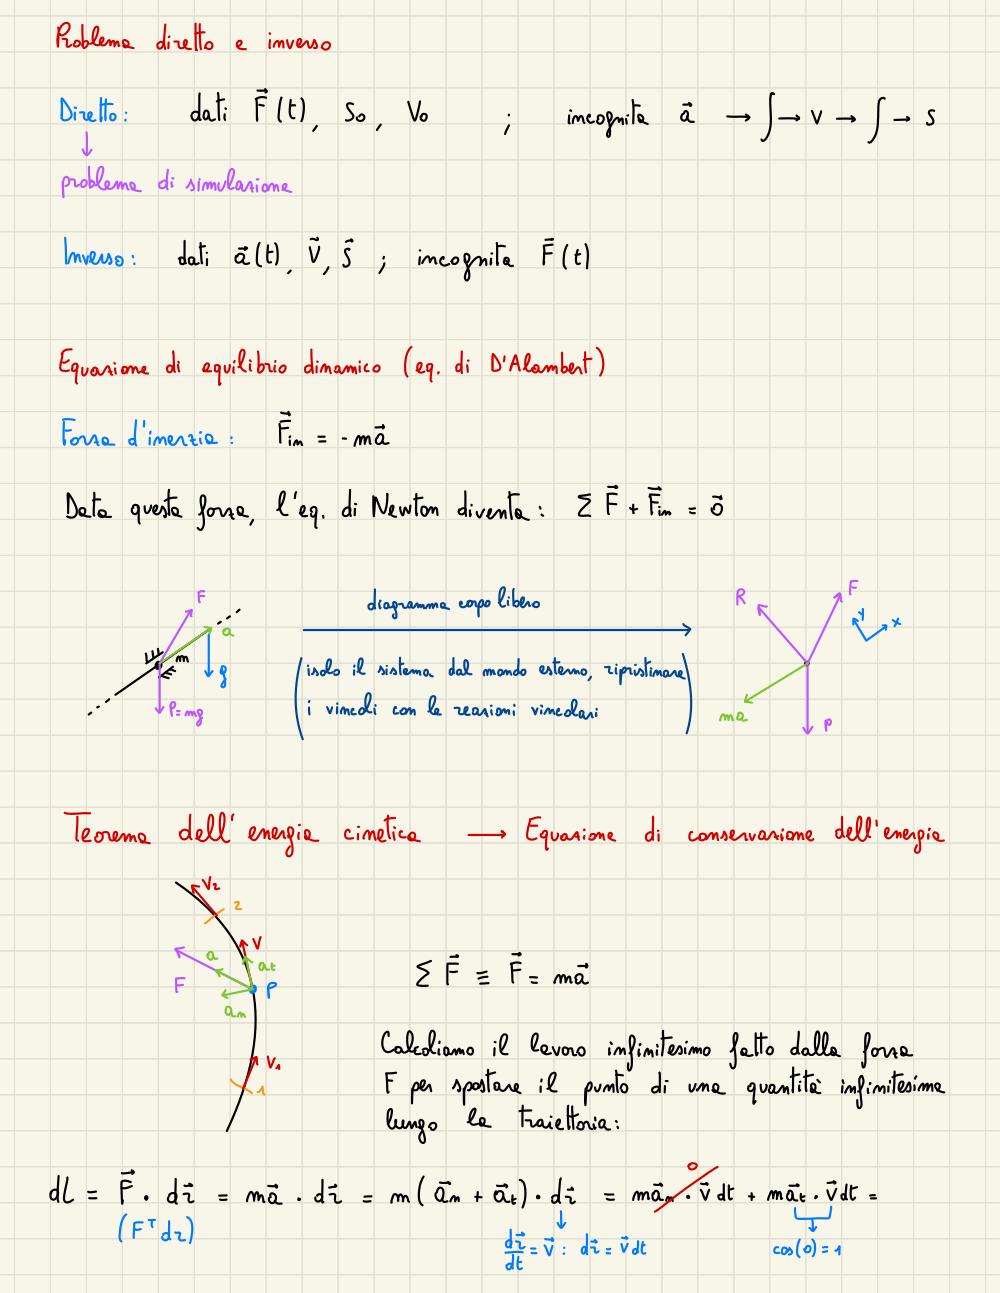 Problema diretto e inverso
Diretto: dati F⃗(t), S₀, V₀ ; incognita a⃗ → ∫ → v → ∫ → s
↓
problema di simulazione
Inverso: dati a⃗(t), v⃗, s⃗ ; incognita F⃗(t)
Equazione di equilibrio dinamico (eq. di D'Alambert)
Forza d'inerzia: F⃗in = - ma⃗
Data questa forza, l'eq. di Newton diventa: Σ F⃗ + F⃗in = 0⃗
F
a
m
g
P=mg
diagramma corpo libero
(isolo il sistema dal mondo esterno, ripristinare
i vincoli con le reazioni vincolari)
R
F
y
x
ma
P
Teorema dell'energia cinetica → Equazione di conservazione dell'energia
V₂
2
V
a
at
F
P
an
V₁
1
Σ F⃗ ≡ F⃗ = ma⃗
Calcoliamo il lavoro infinitesimo fatto dalla forza
F per spostare il punto di una quantità infinitesima
lungo la traiettoria:
dL = F⃗ · dr⃗ = ma⃗ · dr⃗ = m(a⃗n + a⃗t) · dr⃗ = ma⃗n · v⃗ dt + ma⃗t · v⃗ dt =
0
(Fᵀdr)
dr⃗/dt = v⃗ : dr⃗ = v⃗ dt
cos(0) = 1